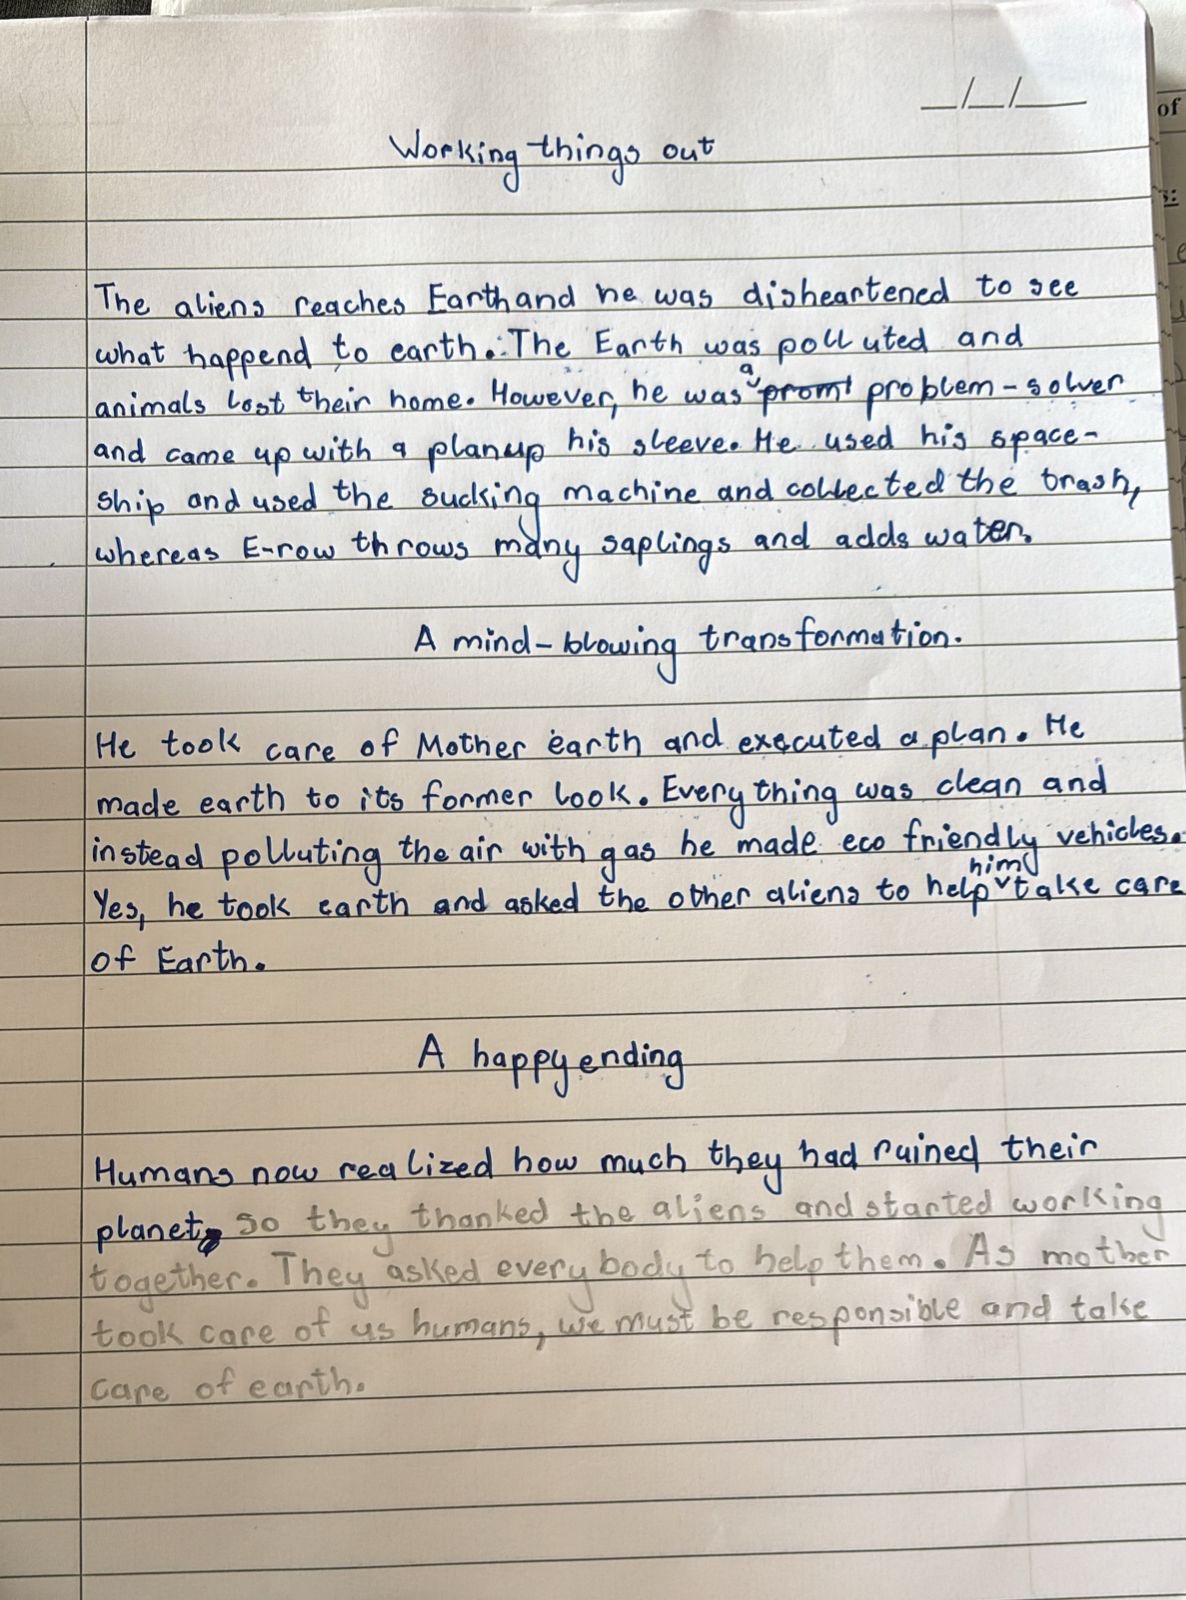 __/__/____
of
s:
Working things out
The aliens reaches Earth and he was disheartened to see
what happend to earth. The Earth was polluted and
animals lost their home. However, he was a promt problem-solver
and came up with a plan up his sleeve. He used his space-
ship and used the sucking machine and collected the trash,
whereas E-row throws many saplings and adds water.
A mind-blowing transformation.
He took care of Mother earth and executed a plan. He
made earth to its former look. Everything was clean and
instead polluting the air with gas he made eco friendly vehicles.
Yes, he took earth and asked the other aliens to help him take care
of Earth.
A happy ending
Humans now realized how much they had ruined their
planet, so they thanked the aliens and started working
together. They asked every body to help them. As mother
took care of us humans, we must be responsible and take
care of earth.